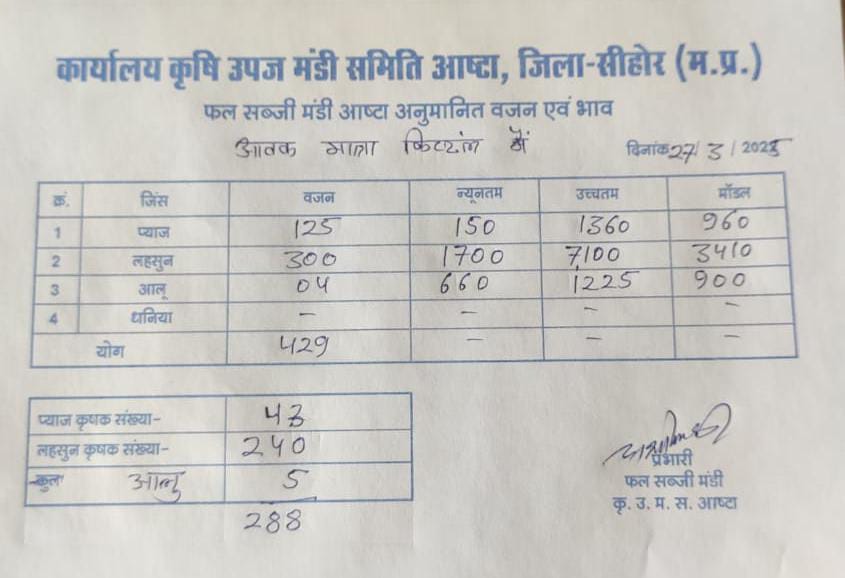 कार्यालय कृषि उपज मंडी समिति आष्टा, जिला-सीहोर (म.प्र.)
फल सब्जी मंडी आष्टा अनुमानित वजन एवं भाव
आवक मात्रा क्विंटल में दिनांक 27/3/2025
क्रं. जिंस वजन न्यूनतम उच्चतम मॉडल
1 प्याज 125 150 1360 960
2 लहसुन 300 1700 7100 3410
3 आलू 04 660 1225 900
4 धनिया - - - -
योग 429 - - -
प्याज कृषक संख्या- 43
लहसुन कृषक संख्या- 240
कुल आलु 5
288
प्रभारी
फल सब्जी मंडी
कृ. उ. म. स. आष्टा